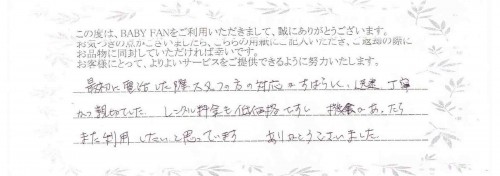 この度は、BABY FANをご利用いただきまして、誠にありがとうございます。
お気づきの点がございましたら、こちらの用紙にご記入いただき、ご返却の際に
お品物に同封していただければ幸いです。
お客様にとって、よりよいサービスをご提供できるように努力いたします。
最初に電話した際スタッフの方の対応がすばらしく、迅速、丁寧
かつ親切でした レンタル料金も低価格ですし 機会があったら
また利用したいと思っています ありがとうございました